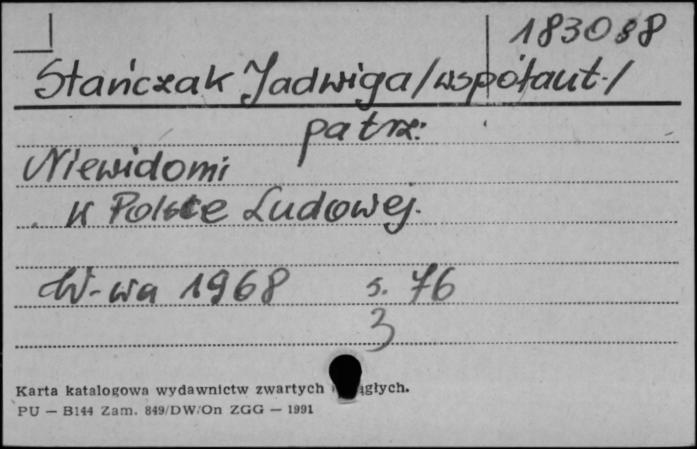 183088
Stańczak Jadwiga /współaut./
patrz:
Niewidomi
w Polsce Ludowej.
W-wa 1968 s. 76
3
Karta katalogowa wydawnictw zwartych
PU — B144 Zam. 849/DW/On ZGG — 1991